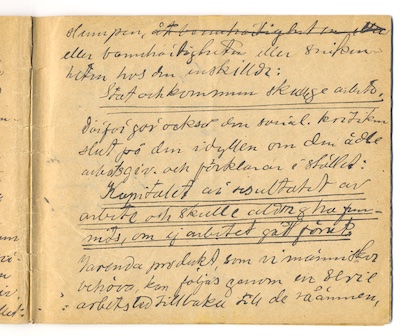 slumpen, åt barmhärtighet en eller
eller barmhärtigheten eller sniken-
heten hos den enskillde:
Stat och kommun skulle ge arbete.
Därför gör också den social. kritiken
slut på den idyllen om den ädle
arbetsgiv. och förklarar i stället:
Kapitalet är resultatet av
arbete och skulle aldrig ha fun-
nits, om ej arbetet gått förut.
Varenda produkt, som vi människor
behöva, kan följas genom en serie
arbetsled tillbaka till de råämnen,